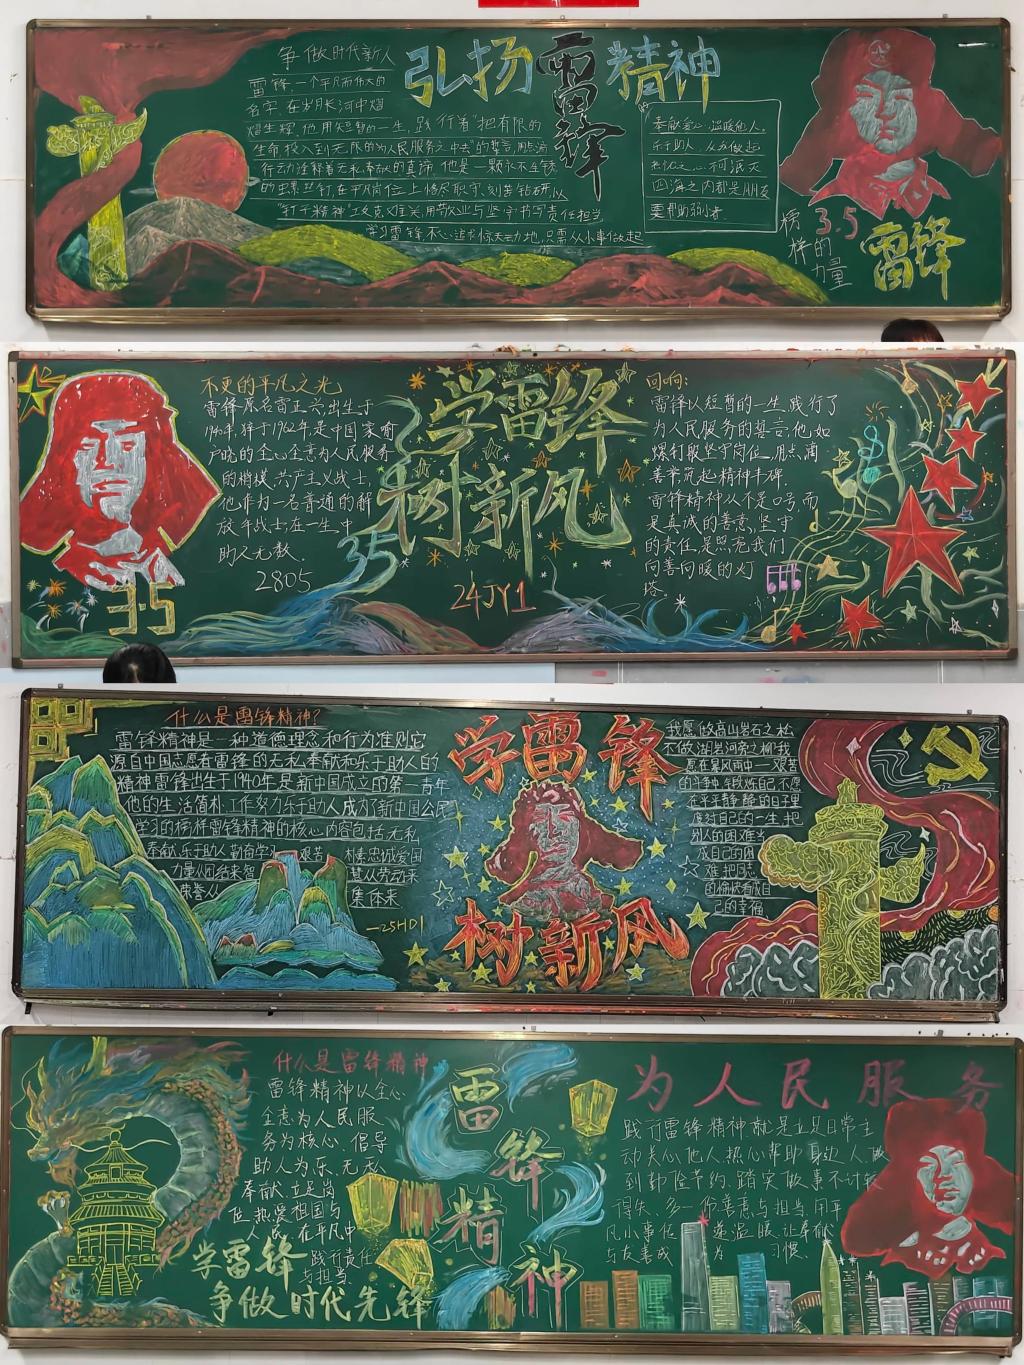 争做时代新人
弘扬雷锋精神
雷锋,一个平凡而伟大的
名字,在岁月长河中熠
熠生辉。他用短暂的一生,践行着“把有限的
生命投入到无限的为人民服务之中去”的誓言,用点滴
行动诠释着无私奉献的真谛。他是一颗永不生锈
的螺丝钉,在平凡岗位上恪尽职守,刻苦钻研,以
“钉子精神”攻克难关,用敬业与坚守书写责任担当
学习雷锋,不必追求惊天动地,只需从小事做起
奉献爱心,温暖他人,
乐于助人,从我做起
四海之内都是朋友
3.5
榜样的力量
雷锋
不灭的平凡之光
雷锋原名雷正兴,出生于
1940年,牺牲于1962年,是中国家喻
户晓的全心全意为人民服务
的楷模,共产主义战士,
他作为一名普通的解
放军战士,在一生中
助人无数.
2805
3.5
35
学雷锋
树新风
24JY1
回响:
雷锋以短暂的一生,践行了
为人民服务的誓言,他如
螺钉般坚守岗位,用点滴
善举筑起精神丰碑.
雷锋精神从不是口号,而
是真诚的善意,坚守
的责任,是照亮我们
向善向暖的灯
塔。
什么是雷锋精神?
雷锋精神是一种道德理念和行为准则它
源自中国志愿者雷锋的无私奉献和乐于助人的
精神雷锋出生于1940年是新中国成立的第一青年
他的生活简朴工作努力乐于助人成为了新中国公民
学习的榜样雷锋精神的核心内容包括无私
奉献乐于助人勤奋学习 艰苦 朴素忠诚爱国
力量从团结来智 慧从劳动来
荣誉从 集体来
—25HD1
学雷锋
树新风
我愿做高山岩石之松
不做湖岩河旁之柳我
愿在暴风雨中—艰苦
的斗争中锻炼自己不愿
在平平静静的日子里
度过自己的一生把
别人的困难当
成自己的困
难把同志
的愉快看成自
己的幸福
什么是雷锋精神
雷锋精神以全心
全意为人民服
务为核心,倡导
助人为乐、无私
奉献、立足岗
位、热爱祖国与
人民,在平凡中
践行责任
与担当。
学雷锋
争做时代先锋
雷锋精神
为人民服务
践行雷锋精神,就是立足日常主
动关心他人,热心帮助身边人,做
到勤俭节约、踏实做事不计较
得失、多一份善意与担当,用平
凡小事传递温暖,让奉献
与友善成为习惯.